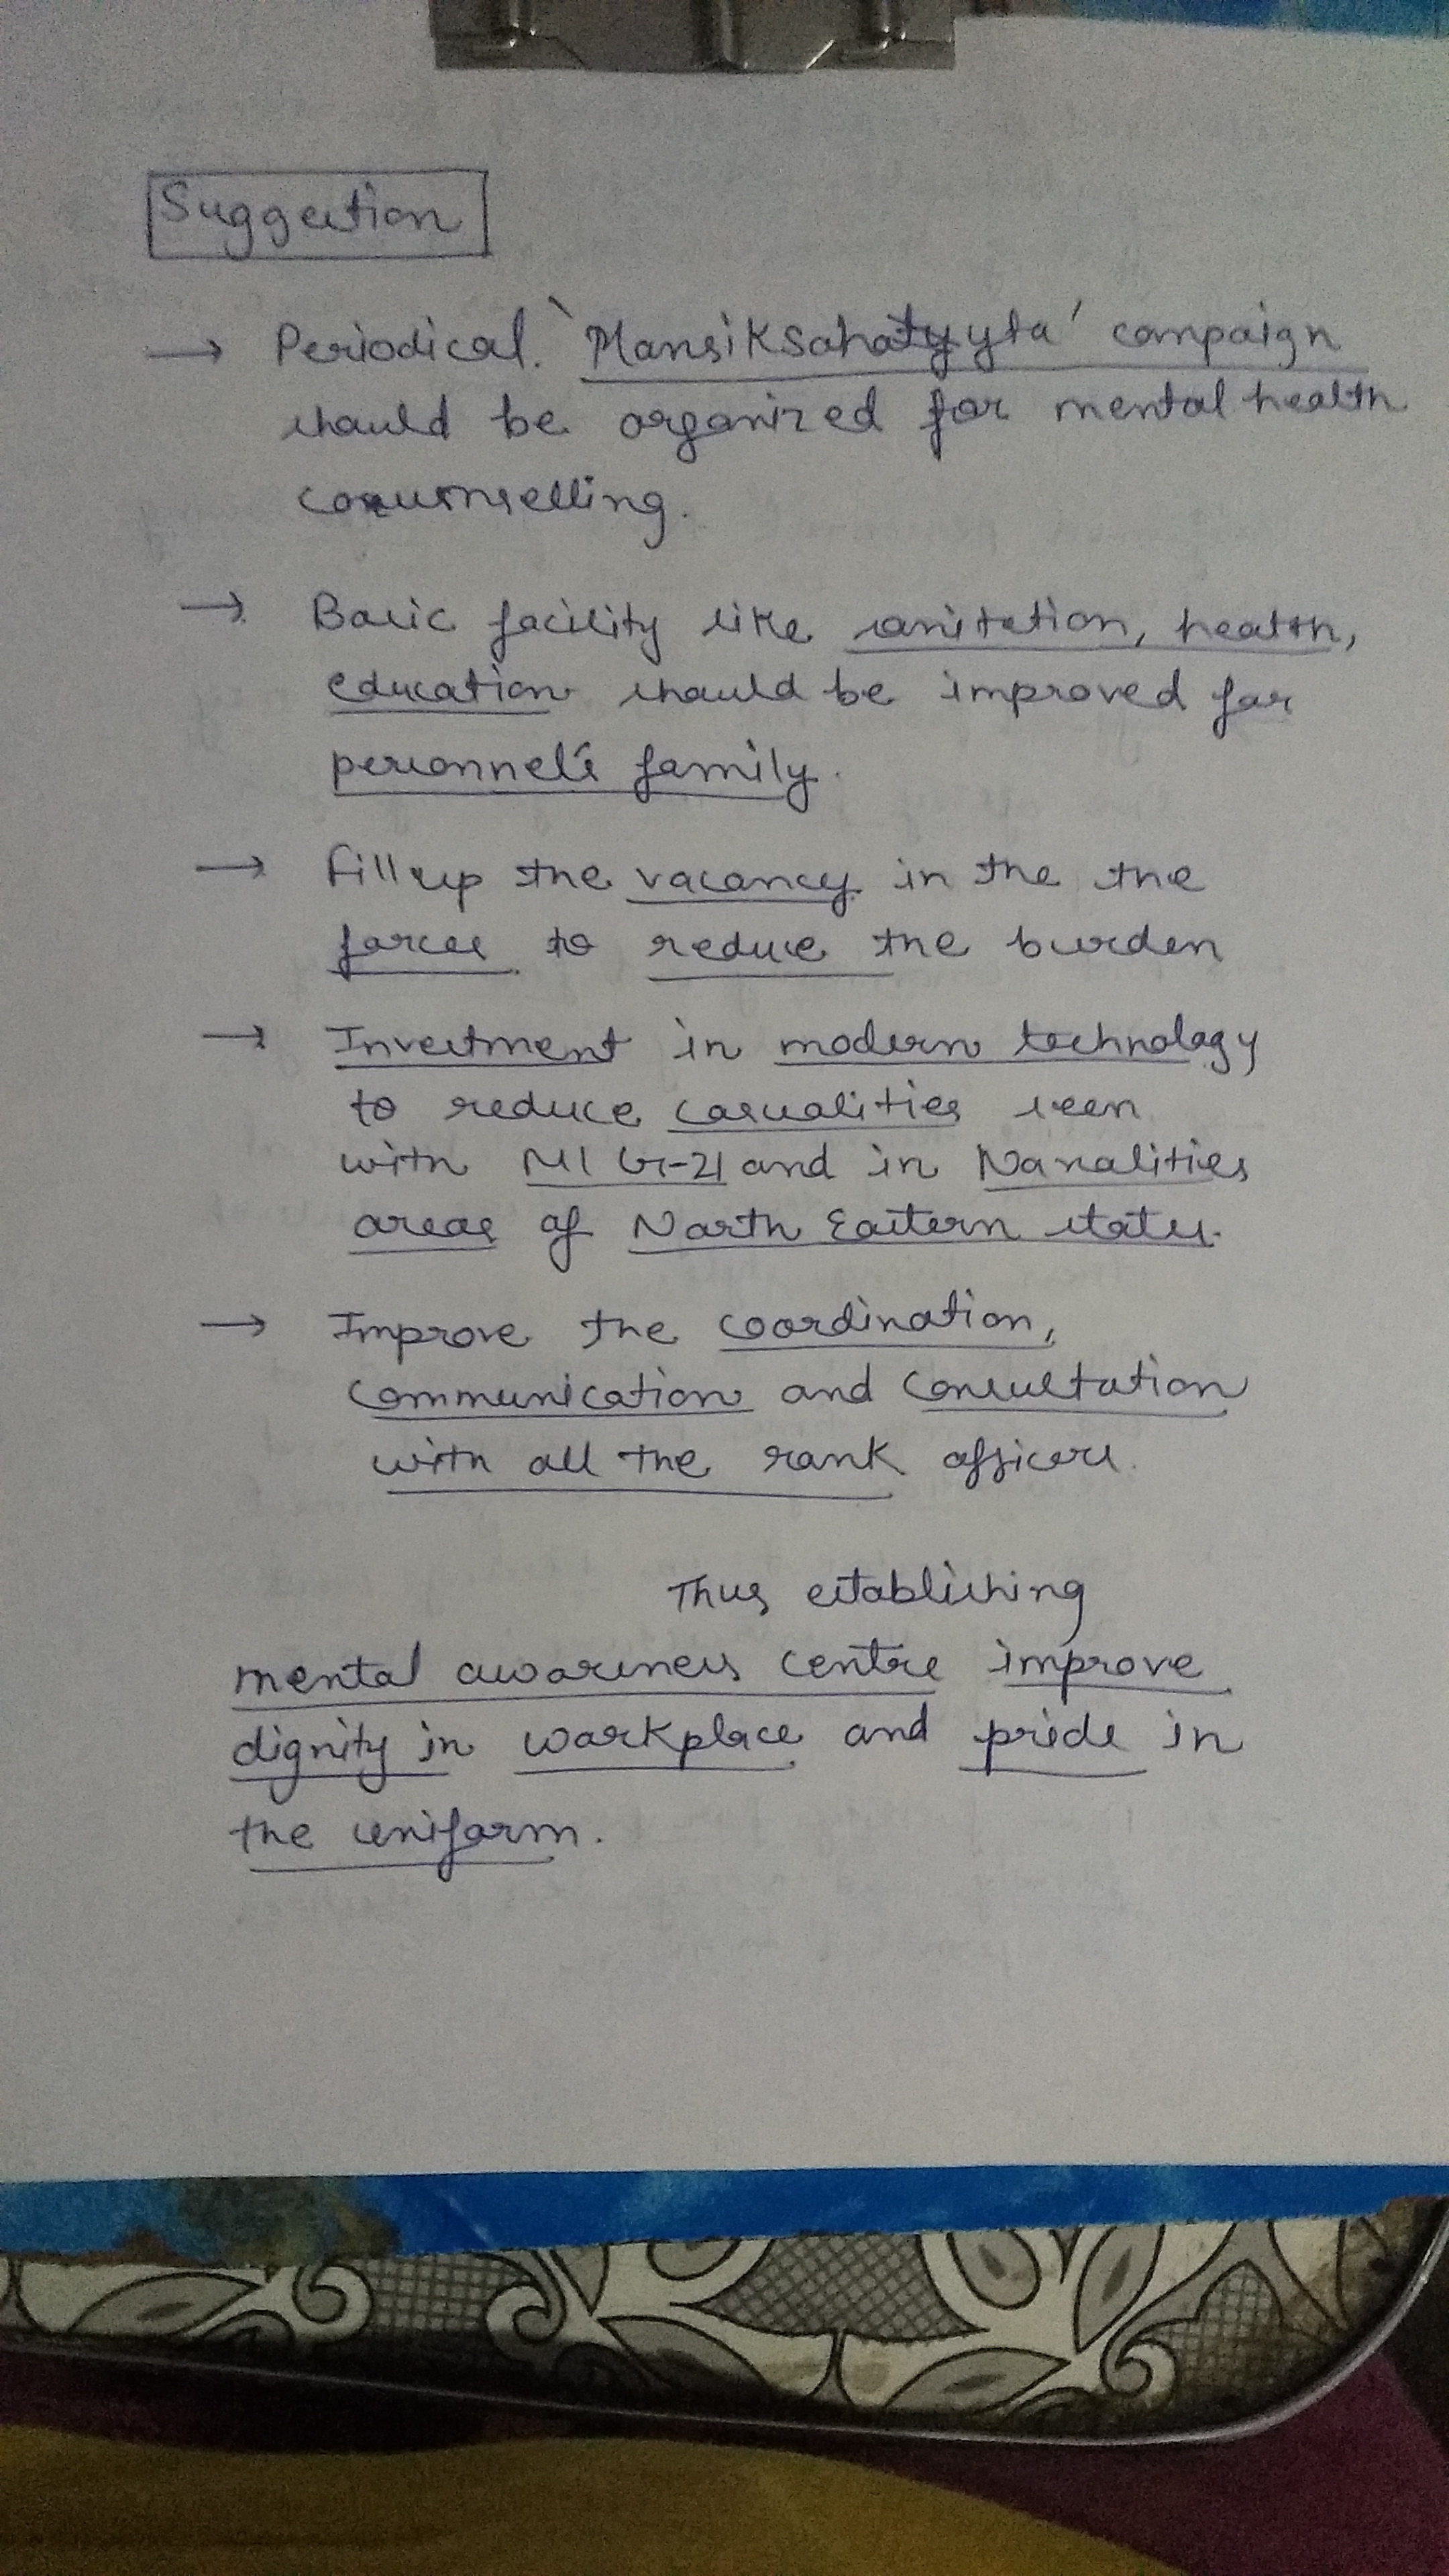 Suggestion
→ Periodical. 'Mansik Sahayyta' campaign
should be organized for mental health
counselling.
→ Basic facility like sanitation, health,
education should be improved for
personnel's family.
→ Fill up the vacancy in the the
forces to reduce the burden
→ Investment in modern technology
to reduce casualities seen
with MIG-21 and in Naxalities
areas of North Eastern states.
→ Improve the coordination,
communication and consultation
with all the rank officers.
Thus establishing
mental awareness centre improve
dignity in workplace and pride in
the uniform.